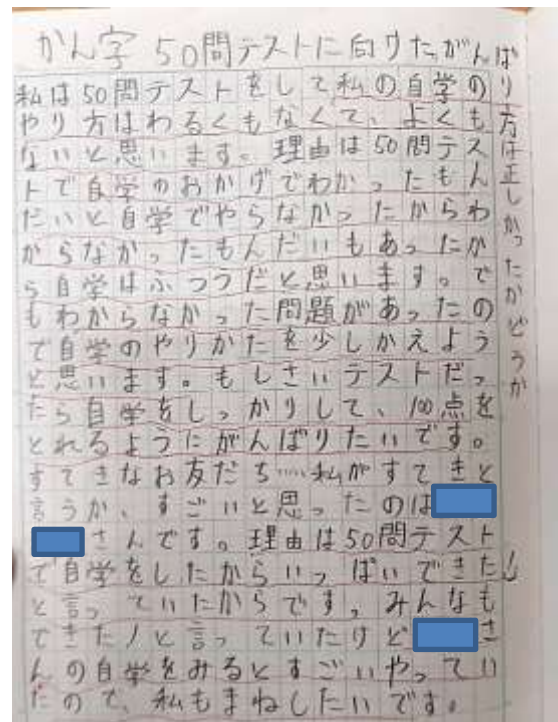 かん字50問テストに向けたがんば
り方は正しかったかどうか
私は50問テストをして私の自学の
やり方はわるくもなくて、よくも
ないと思います。理由は50問テス
トで自学のおかげでわかったもん
だいと自学でやらなかったからわ
からなかったもんだいもあったか
ら自学はふつうだと思います。で
もわからなかった問題があったの
で自学のやりかたを少しかえよう
と思います。もしさいテストだっ
たら自学をしっかりして、100点を
とれるようにがんばりたいです。
すてきなお友だち……私がすてきと
言うか、すごいと思ったのは
さんです。理由は50問テスト
で自学をしたからいっぱいできた!!
と言っていたからです。みんなも
できた!と言っていたけど さ
んの自学をみるとすごいやってい
たので、私もまねしたいです。